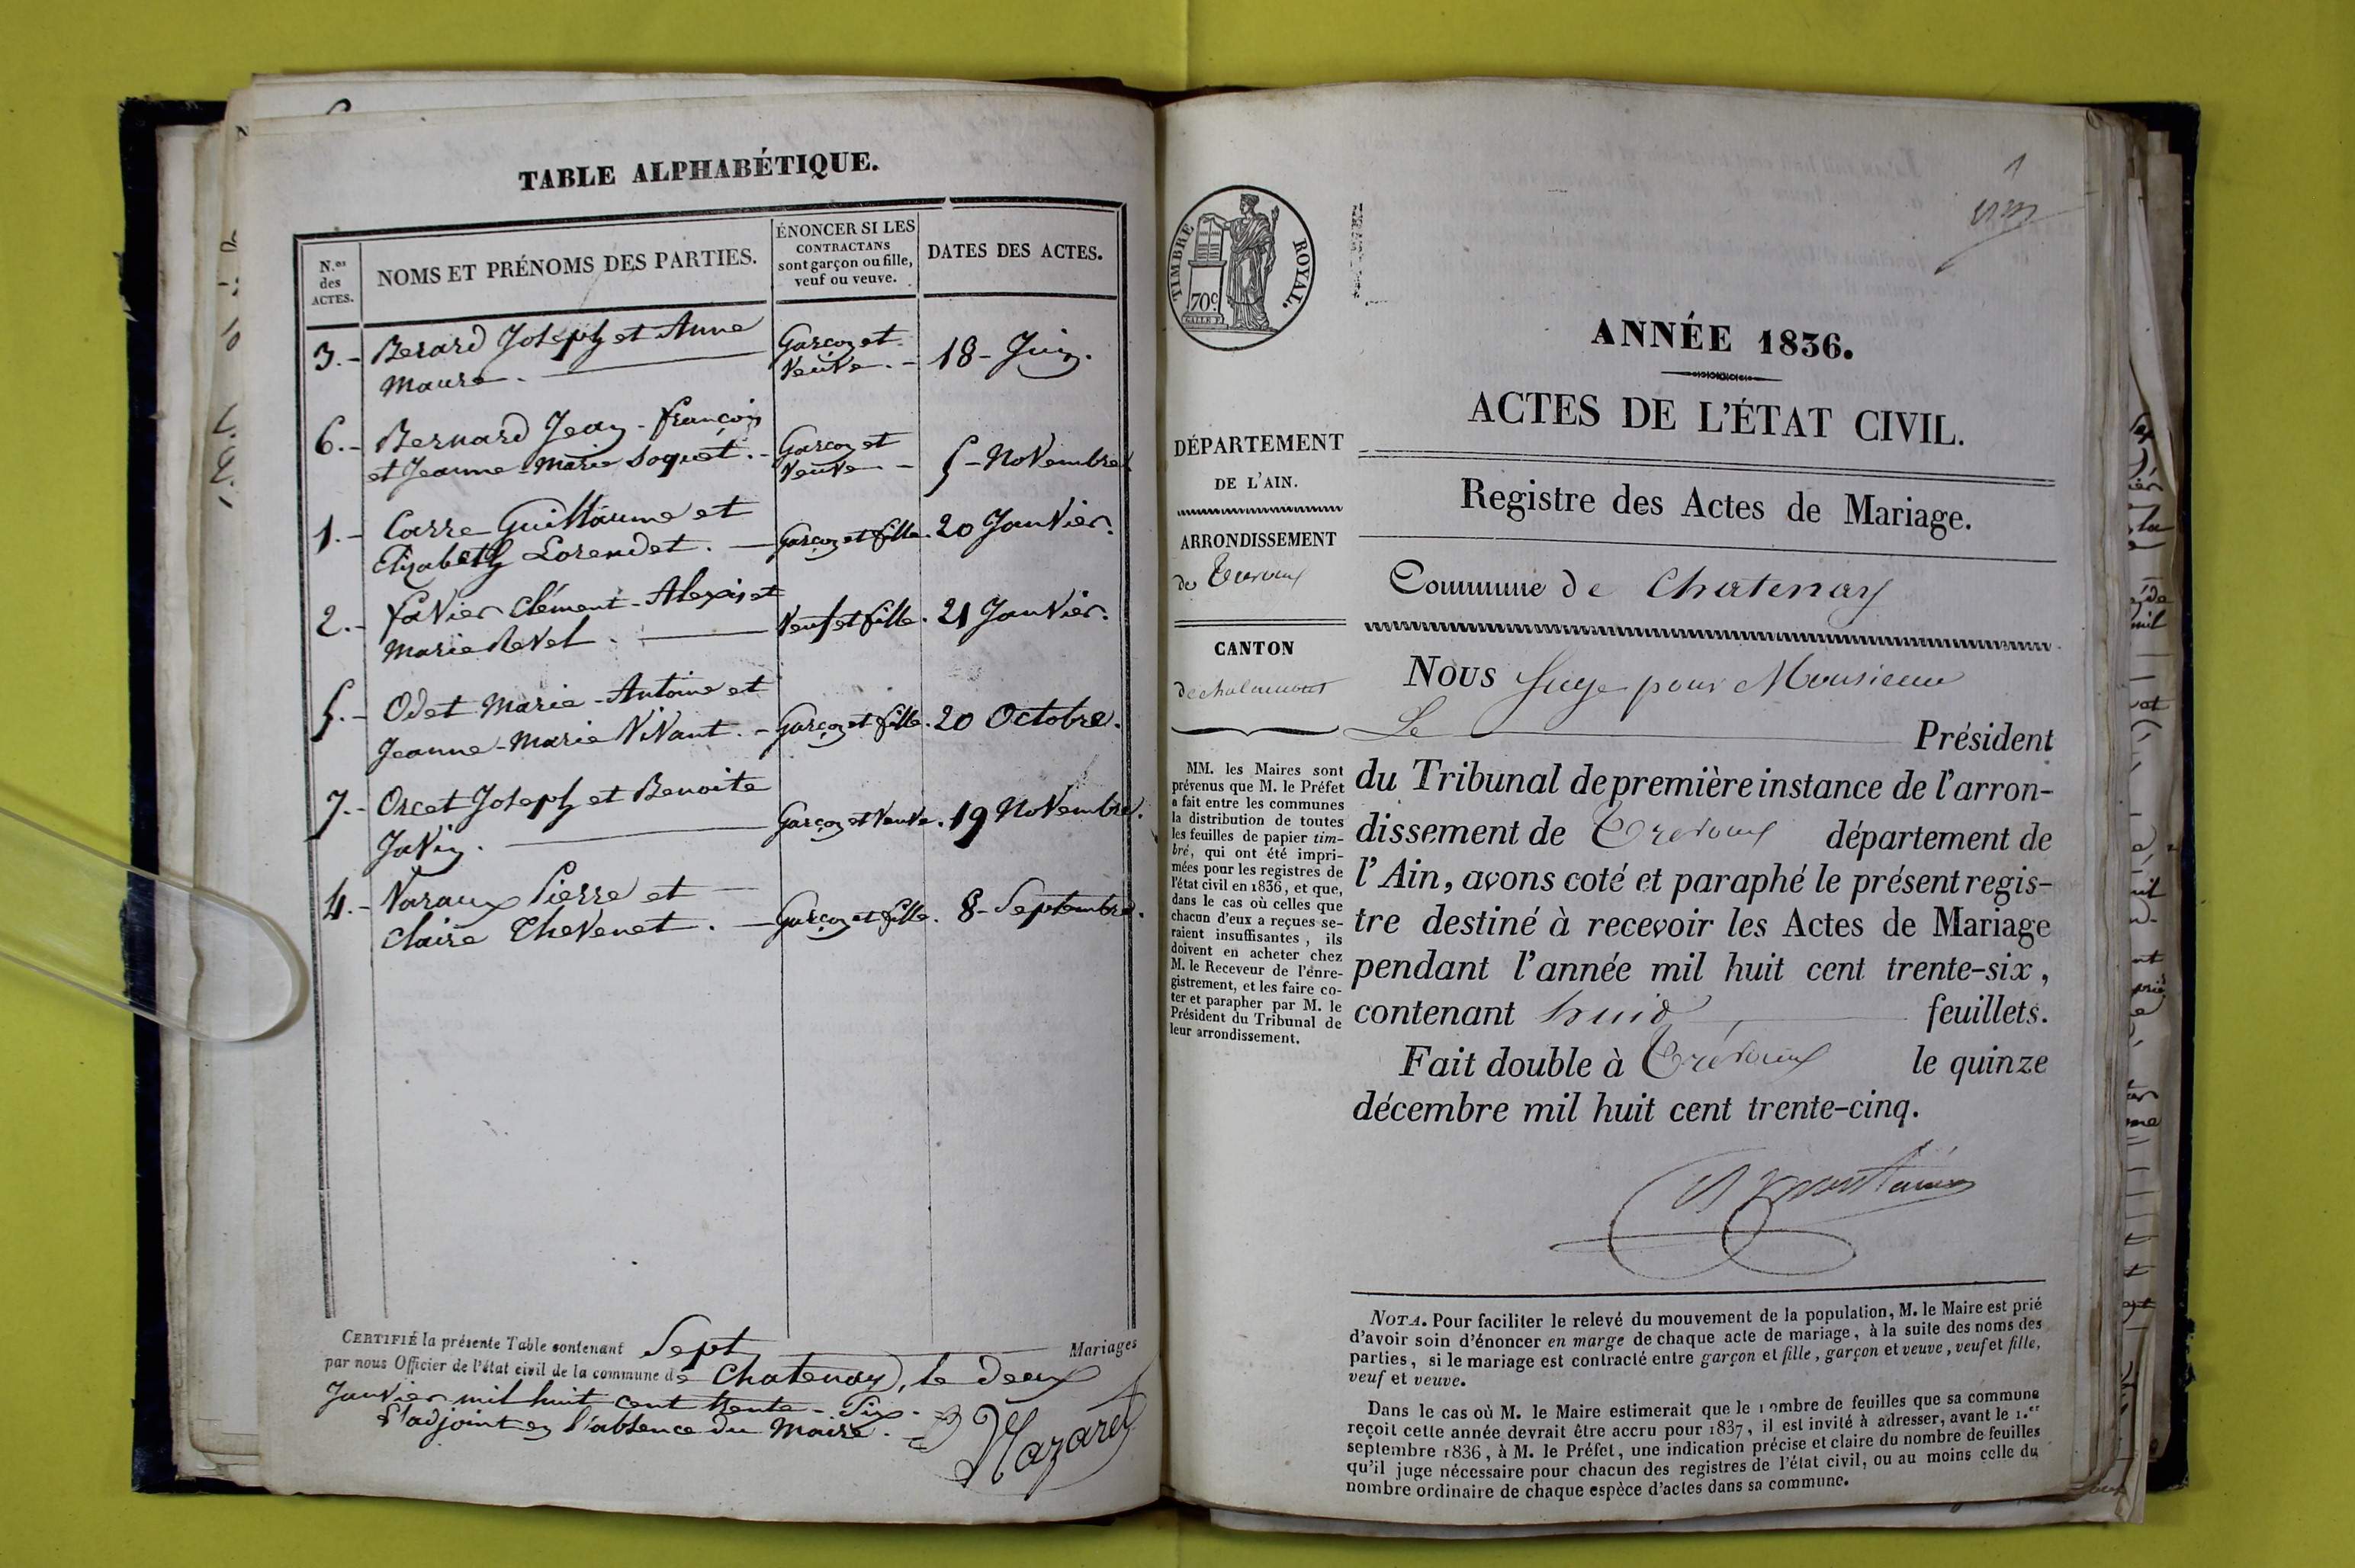 TABLE ALPHABÉTIQUE.
N.os des ACTES.
NOMS ET PRÉNOMS DES PARTIES.
ÉNONCER SI LES
CONTRACTANS
sont garçon ou fille,
veuf ou veuve.
DATES DES ACTES.
3.- Berard Joseph et Anne Garçon et 18- Juin.
Maure. Veuve.-
6.- Bernard Jean-françois Garçon et
et Jeanne-Marie Soquet.- Veuve- 5- Novembre
1.- Carre Guillaume et
Elizabeth Lorendet. - Garçon et fille. 20 Janvier.
2.- favier Clément-Alexis et
Marie Revel. Veuf et fille. 21 Janvier.
5.- Odet Marie-Antoine et
Jeanne-Marie Vivant.- Garçon et fille. 20 Octobre.
7.- Orcet Joseph et Benoite
Javin. Garçon et Veuve. 19 Novembre.
4.- Varaux Pierre et
Claire Thevenet. - Garçon et fille. 8- Septembre.
CERTIFIÉ la présente Table contenant Sept Mariages
par nous Officier de l'état civil de la commune de Chatenay, le deux
Janvier mil huit cent trente-Six.
L'adjoint en l'absence du Maire.
Nazaret
1
TIMBRE ROYAL.
70c
ANNÉE 1836.
ACTES DE L'ÉTAT CIVIL.
Registre des Actes de Mariage.
Commune de Chatenay
DÉPARTEMENT
DE L'AIN.
ARRONDISSEMENT
de Trevoux
CANTON
de chalamont
MM. les Maires sont
prévenus que M. le Préfet
a fait entre les communes
la distribution de toutes
les feuilles de papier tim-
bré, qui ont été impri-
mées pour les registres de
l'état civil en 1836, et que,
dans le cas où celles que
chacun d'eux a reçues se-
raient insuffisantes, ils
doivent en acheter chez
M. le Receveur de l'enre-
gistrement, et les faire co-
ter et parapher par M. le
Président du Tribunal de
leur arrondissement.
Nous Juge pour Monsieur
Le Président
du Tribunal de première instance de l'arron-
dissement de Trevoux département de
l'Ain, avons coté et paraphé le présent regis-
tre destiné à recevoir les Actes de Mariage
pendant l'année mil huit cent trente-six,
contenant huit feuillets.
Fait double à Trévoux le quinze
décembre mil huit cent trente-cinq.
NOTA. Pour faciliter le relevé du mouvement de la population, M. le Maire est prié
d'avoir soin d'énoncer en marge de chaque acte de mariage, à la suite des noms des
parties, si le mariage est contracté entre garçon et fille, garçon et veuve, veuf et fille,
veuf et veuve.
Dans le cas où M. le Maire estimerait que le nombre de feuilles que sa commune
reçoit cette année devrait être accru pour 1837, il est invité à adresser, avant le 1.er
septembre 1836, à M. le Préfet, une indication précise et claire du nombre de feuilles
qu'il juge nécessaire pour chacun des registres de l'état civil, ou au moins celle du
nombre ordinaire de chaque espèce d'actes dans sa commune.